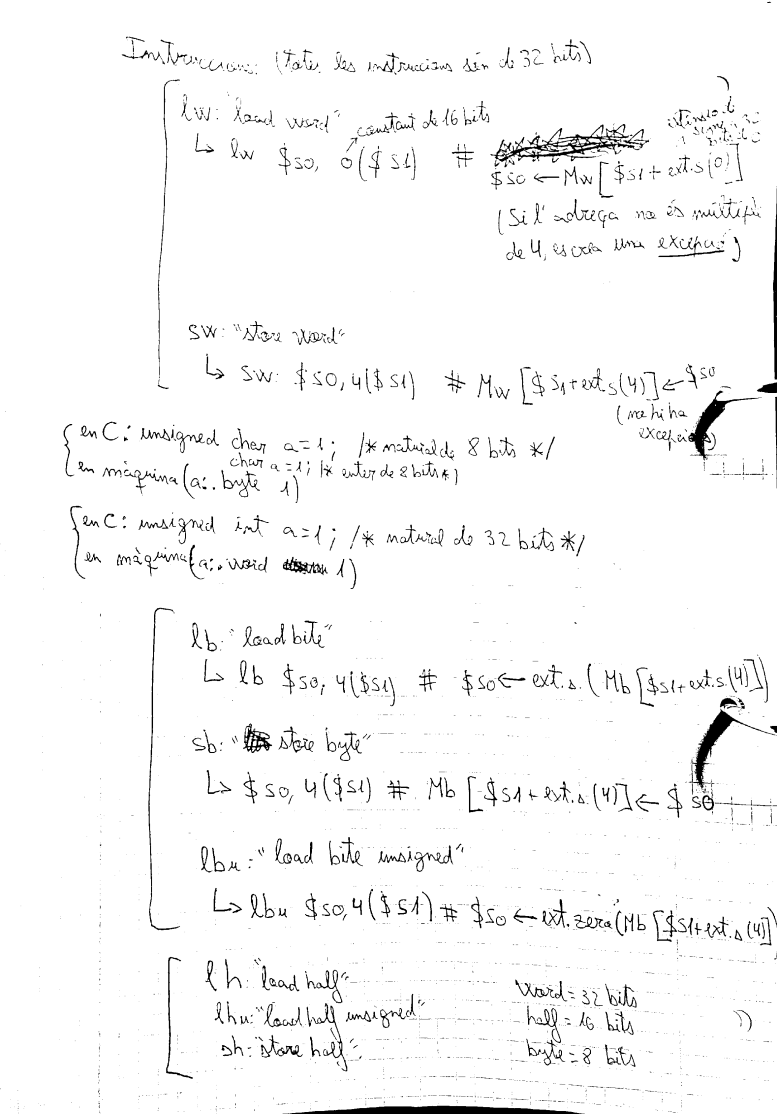 Instruccions: (totes les instruccions són de 32 bits)
lw: "load word"
constant de 16 bits
↳ lw $s0, 0($s1) # $s0 ← Mw[$s1 + ext.s(0)]
extensió de signe
(Si l'adreça no és múltiple
de 4, es crea una excepció)
sw: "store word"
↳ sw: $s0, 4($s1) # Mw[$s1+ext.s(4)] ← $s0
(no hi ha
excepcions)
en C: unsigned char a=1; /* natural de 8 bits */
char a=1; /* enter de 8 bits */
en màquina (a:. byte 1)
en C: unsigned int a=1; /* natural de 32 bits */
en màquina (a:. word 1)
lb: "load bite"
↳ lb $s0, 4($s1) # $s0 ← ext.s.(Mb[$s1+ext.s.(4)])
sb: "store byte"
↳ $s0, 4($s1) # Mb[$s1+ext.s(4)] ← $s0
lbu: "load bite unsigned"
↳ lbu $s0, 4($s1) # $s0 ← ext.zero(Mb[$s1+ext.s(4)]
lh: "load half"
lhu: "load half unsigned"
sh: "store half"
word = 32 bits
half = 16 bits
byte = 8 bits